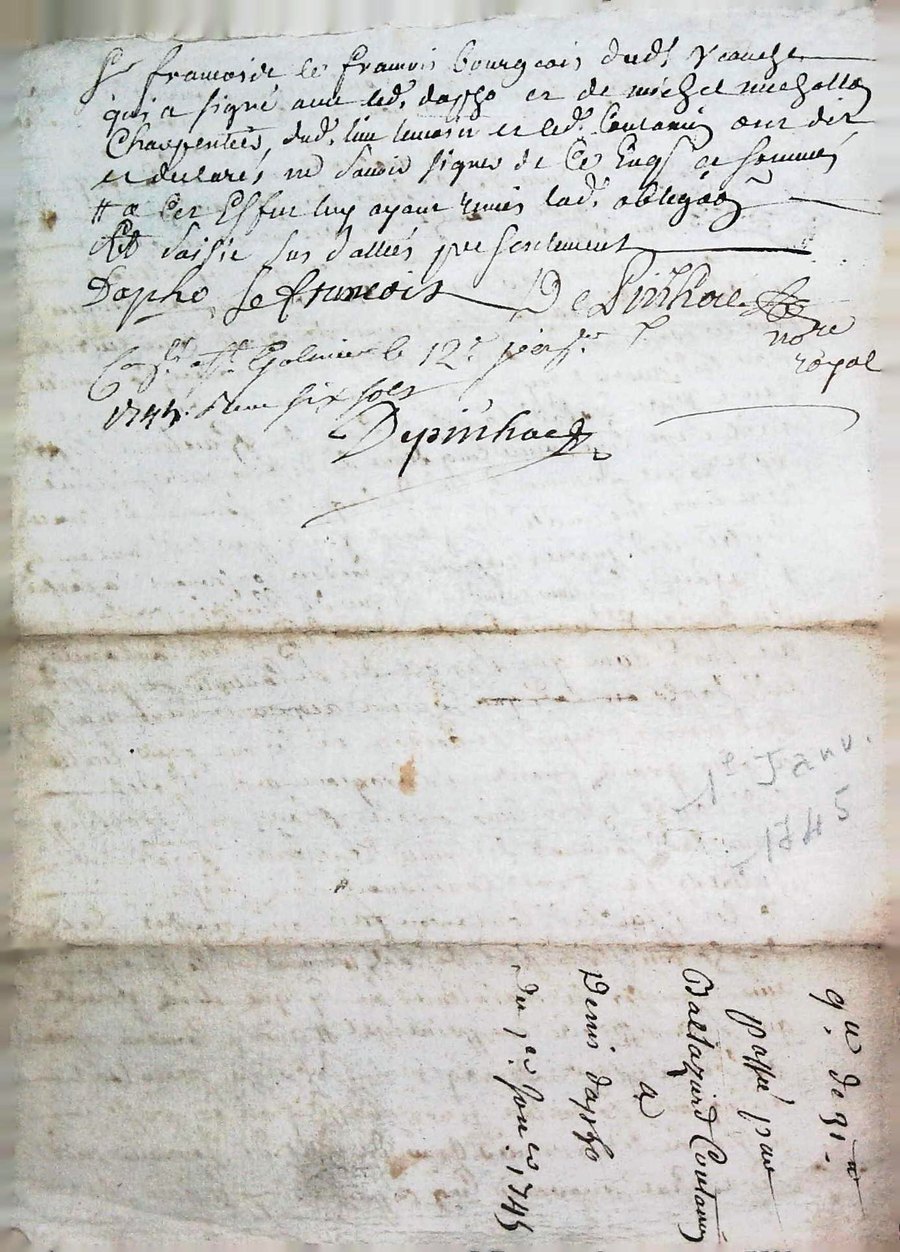 Sr francois le francois bourgeois dudt
qui a signé avec led. dapho et de michel michallon
Charpentier, dud. lieu temoin et led. Coutanin ont dit
et declarés ne savoir signer de ce enqs et sommés
a cet effet luy ayant remis lad. obligãon
Et saisie sus dattés presentement
Dapho le francois De Pinhac
no.re
royal
a St Galmier le 12e
1745. Reçu six sols
Depinhac
1er Janv.
1745
q.ce de 31 -
passé par
Baltazard Coutanin
a
Denis dapho
du 1er Janv 1745